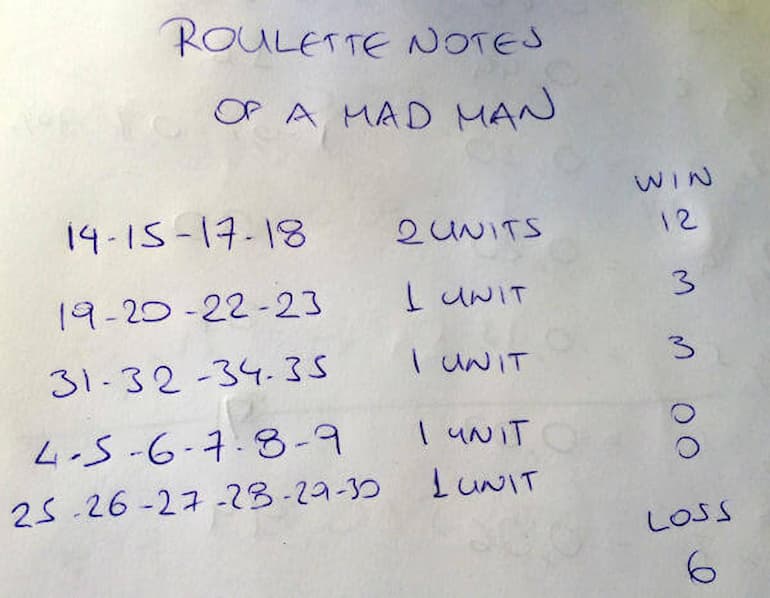 ROULETTE NOTES
OF A MAD MAN
WIN
14-15-17-18 2 UNITS 12
19-20-22-23 1 UNIT 3
31-32-34-35 1 UNIT 3
4-5-6-7-8-9 1 UNIT 0
25-26-27-28-29-30 1 UNIT 0
LOSS
6